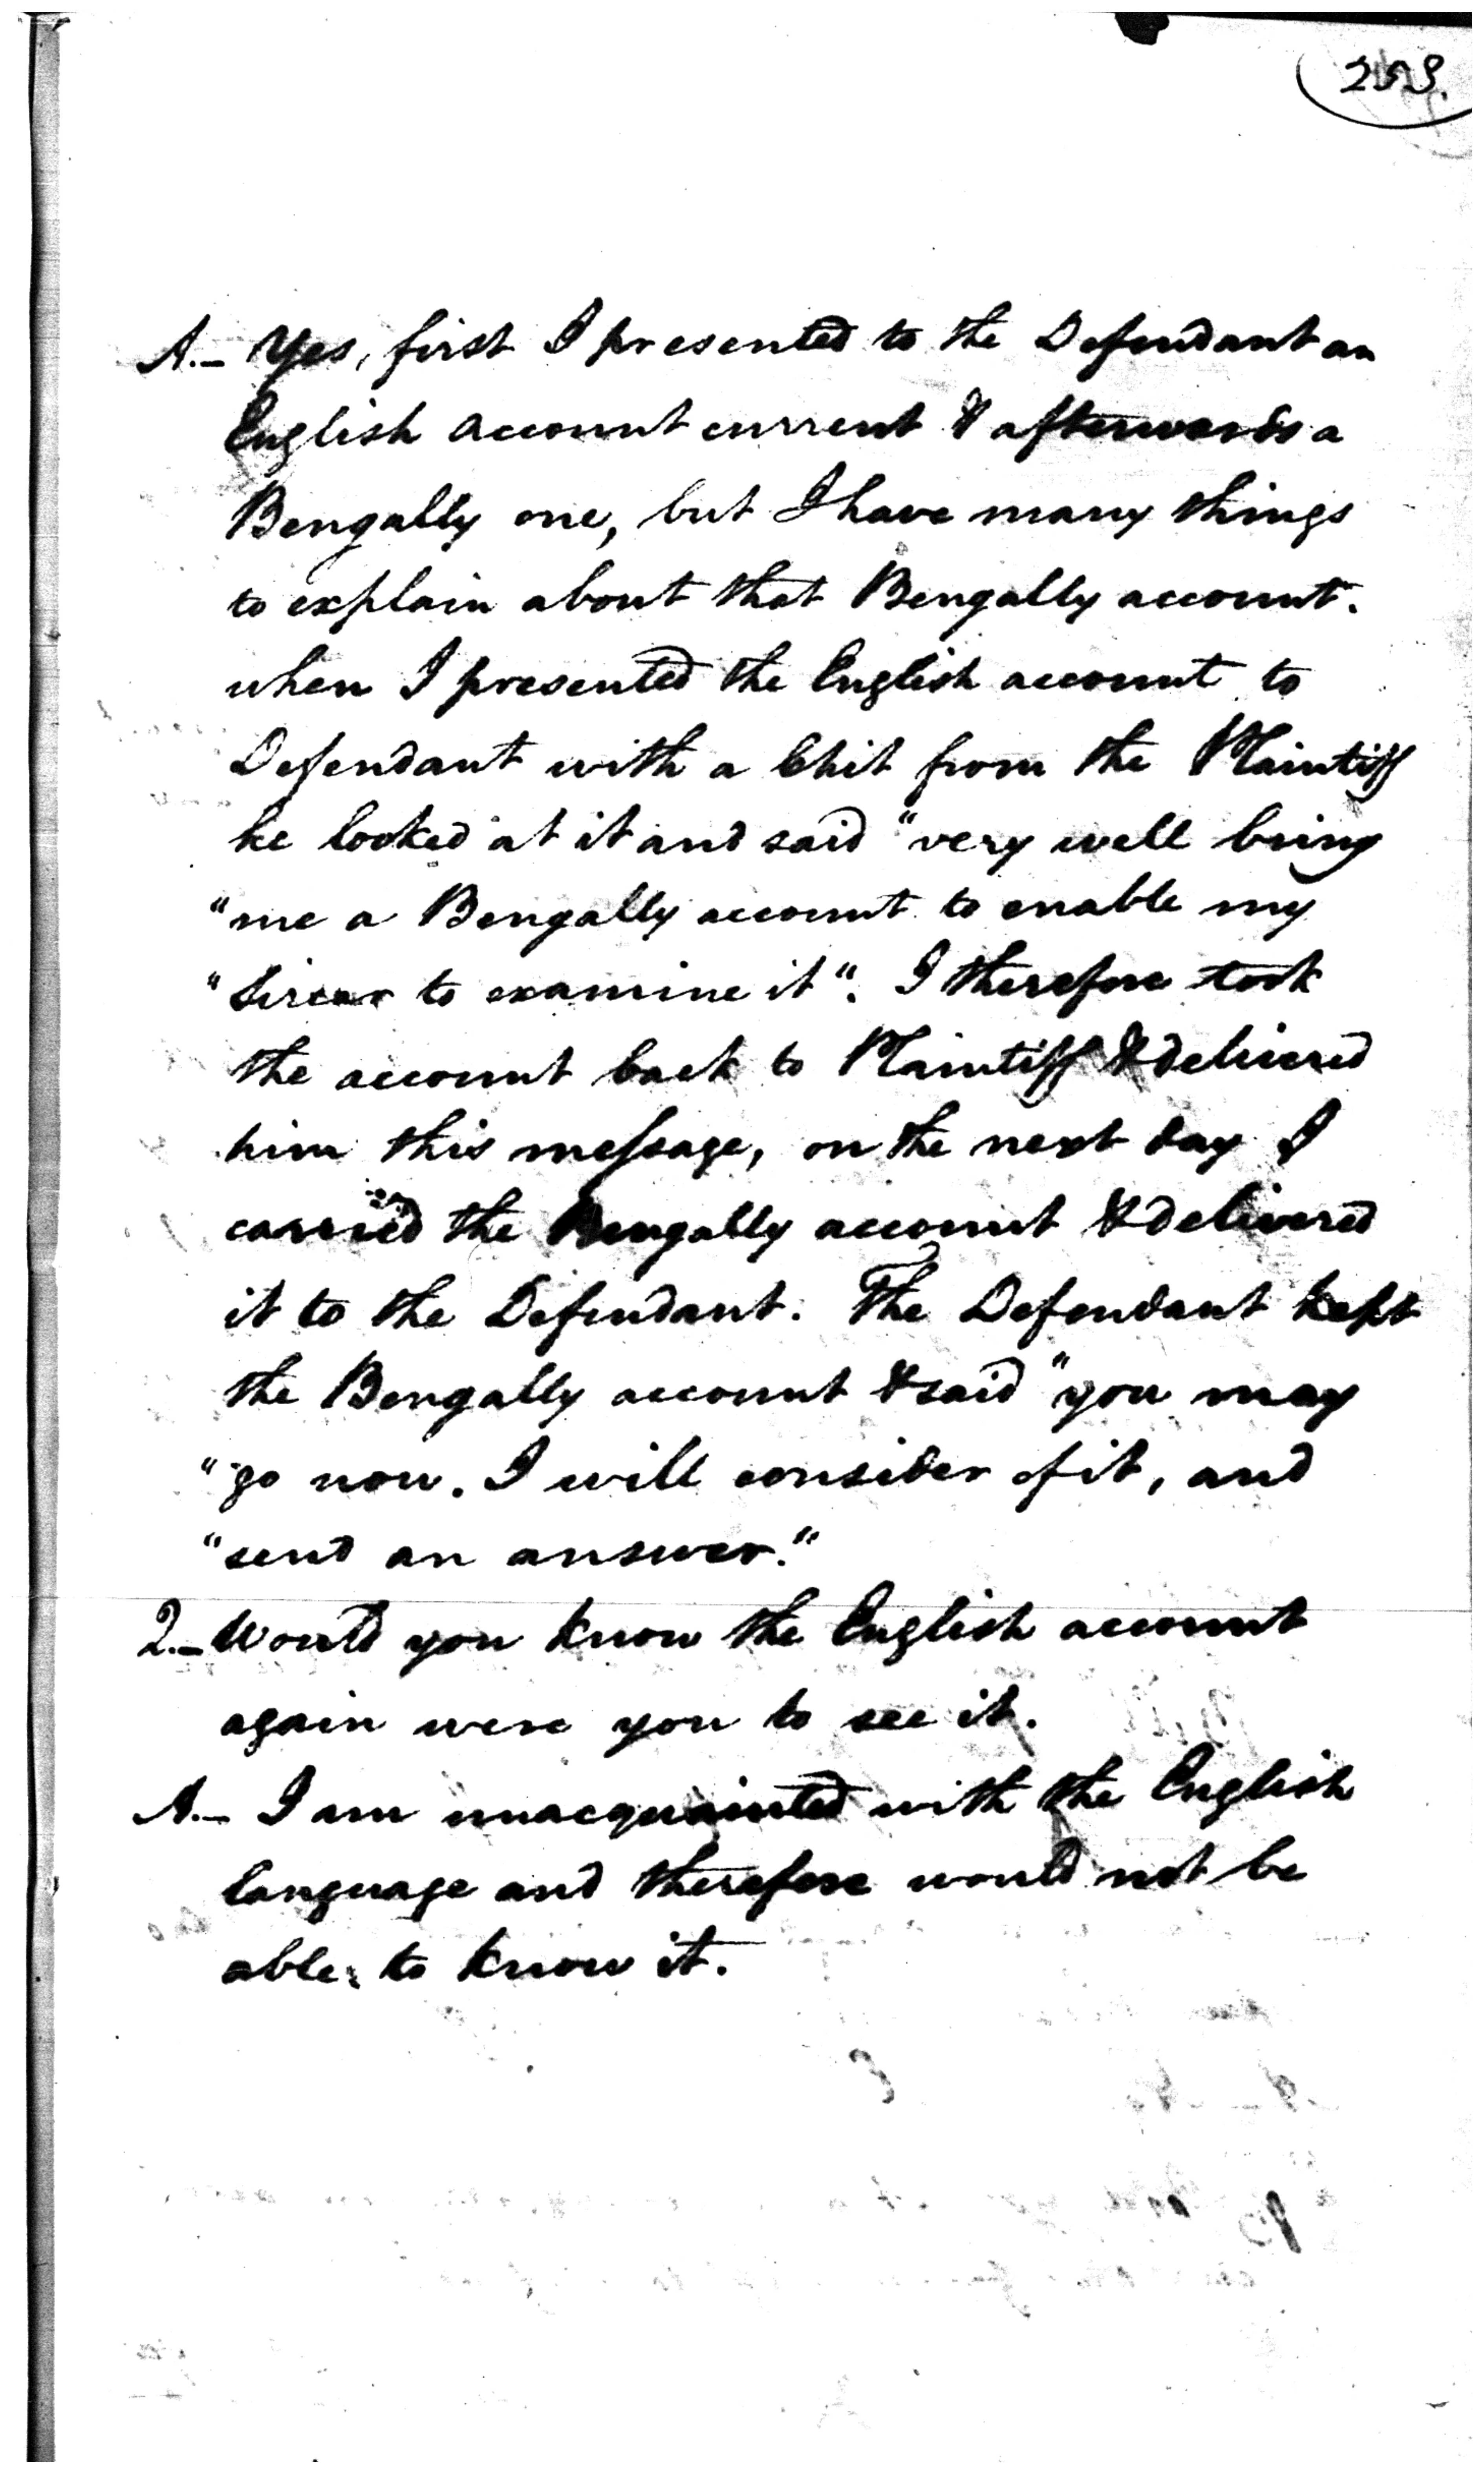 A.- Yes, first I presented to the Defendant an
English account current & afterwards a
Bengally one, but I have many things
to explain about that Bengally account.
when I presented the English account to
Defendant with a Chit from the Plaintiff
he looked at it and said "very well bring
"me a Bengally account to enable my
"Sircar to examine it". I therefore took
the account back to Plaintiff & delivered
him this message, on the next day I
carried the Bengally account & delivered
it to the Defendant. The Defendant kept
the Bengally account & said "you may
"go now. I will consider of it, and
"send an answer."
Q.- Would you know the English account
again were you to see it.
A.- I am unacquainted with the English
language and therefore would not be
able to know it.